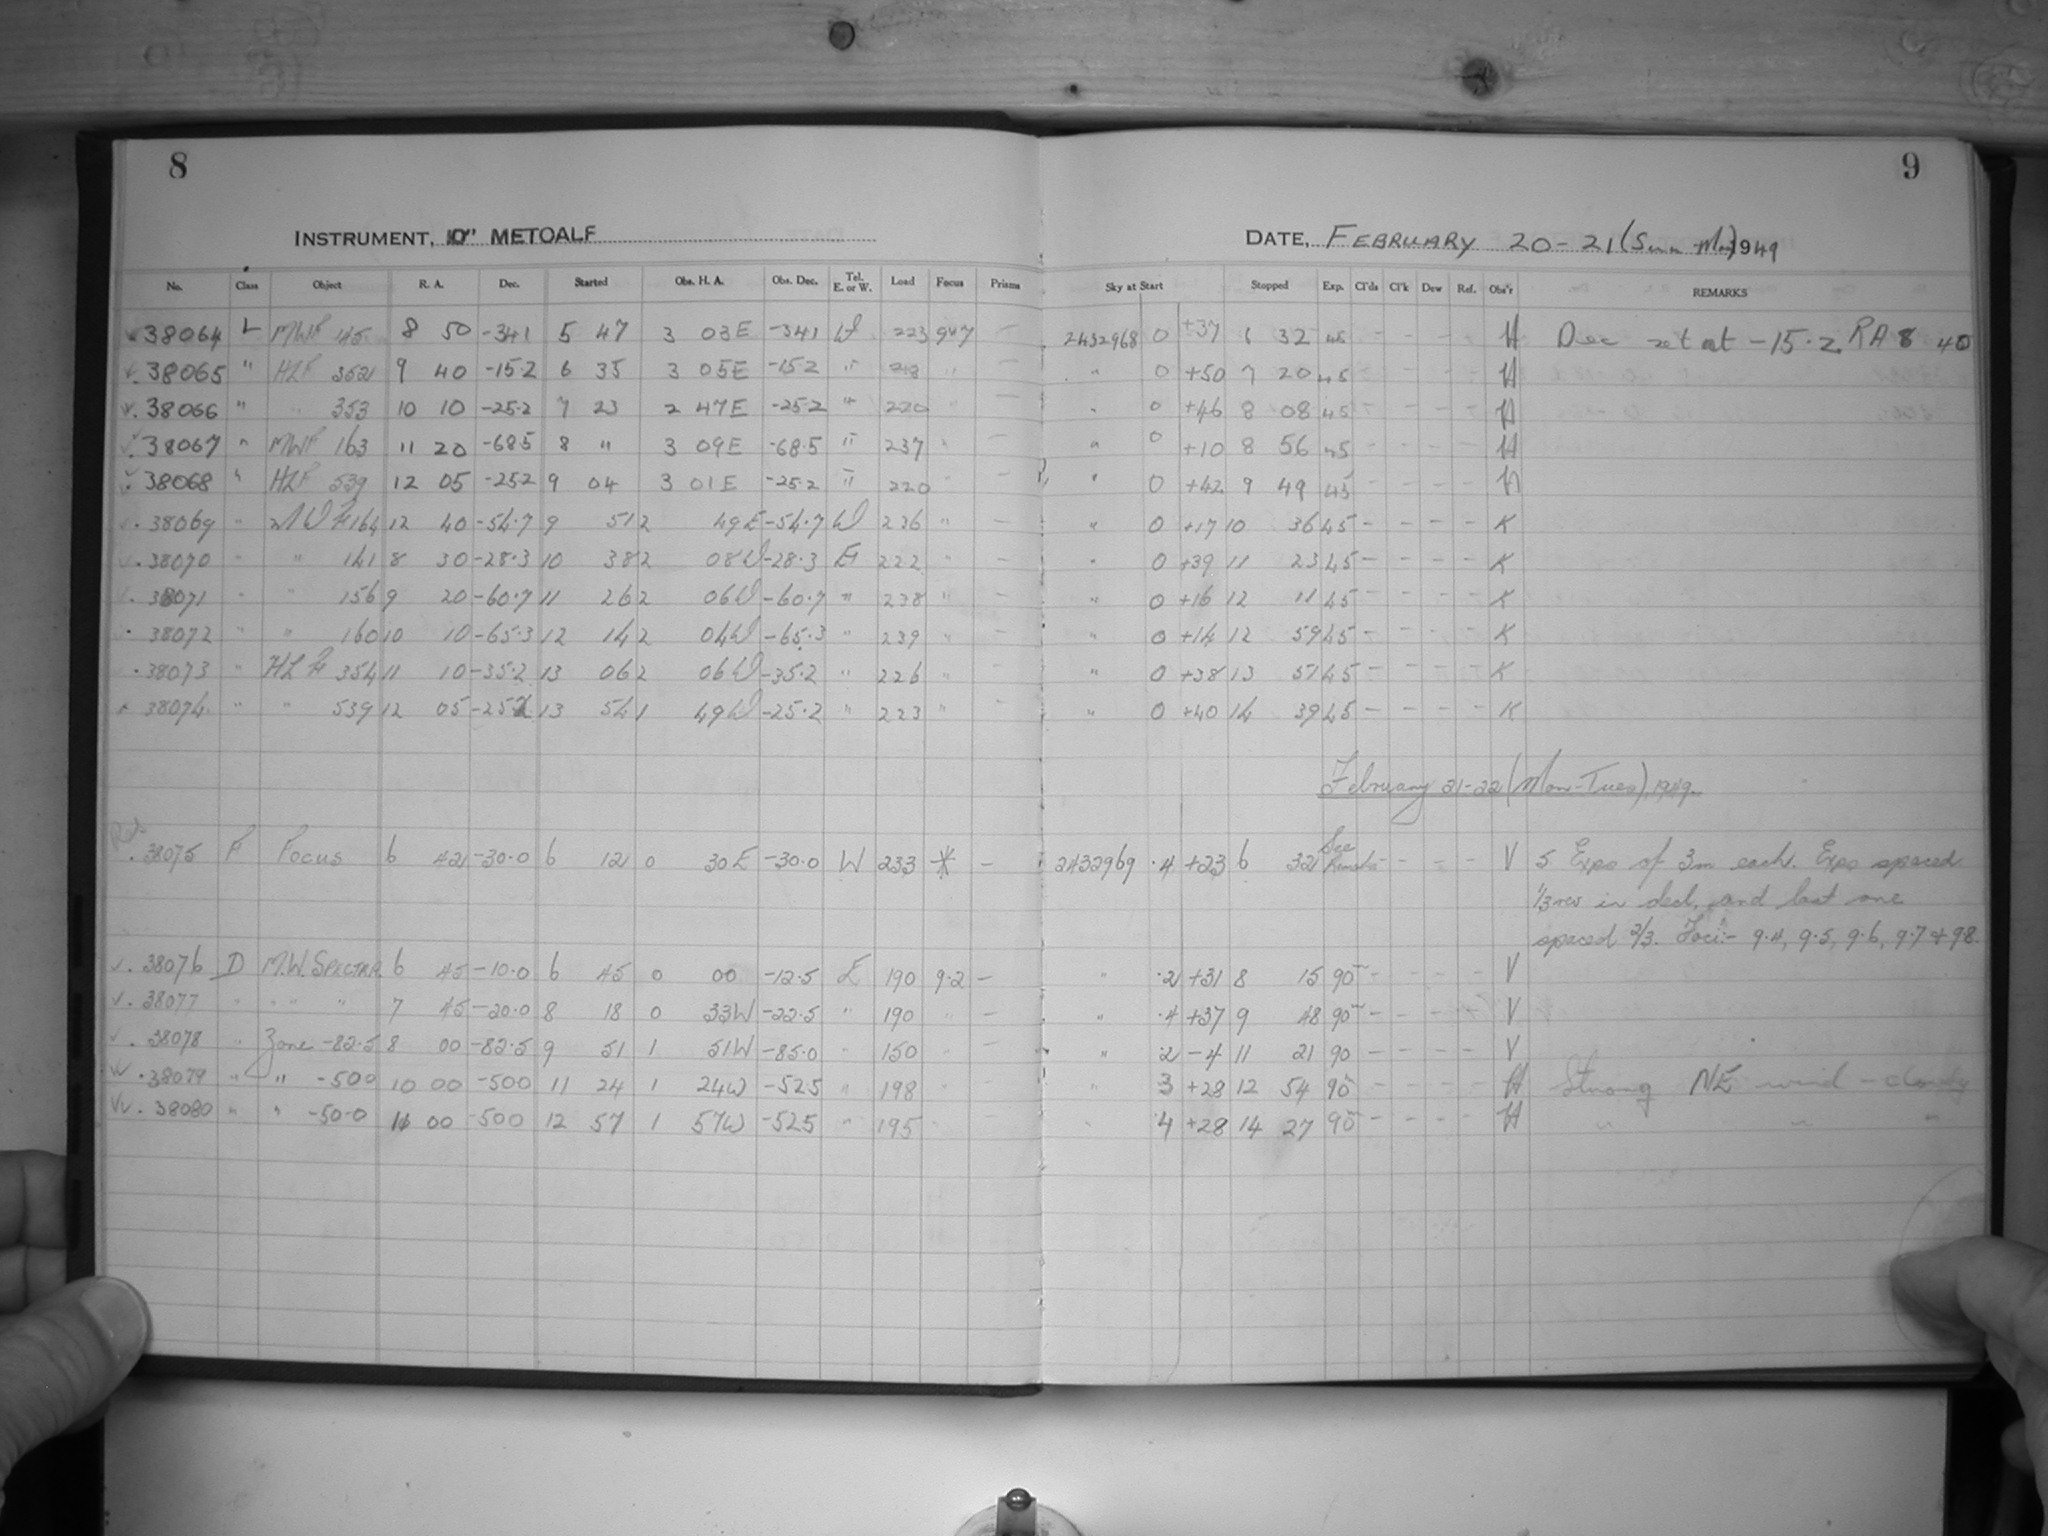 8
9
INSTRUMENT, 10" METCALF
DATE, FEBRUARY 20-21 (Sun-Mon) 1949
No. Class Object R. A. Dec. Started Obs. H. A. Obs. Dec. Tel. E. or W. Load Focus Prisms Sky at Start Stopped Exp. Cl'ds Cl'k Dew Ref. Obs'r REMARKS
38064 L MWF 145 8 50 -34.1 5 47 3 03E -34.1 W 223 9.7 - 2432968 0 +37 6 32 45 - - - - H Dec set at -15.2 RA 8 40
38065 " HLF 352 9 40 -15.2 6 35 3 05E -15.2 " 218 " - " 0 +50 7 20 45 - - - - H
38066 " " 353 10 10 -25.2 7 23 2 47E -25.2 " 220 " - " 0 +46 8 08 45 - - - - H
38067 " MWF 163 11 20 -68.5 8 " 3 09E -68.5 " 237 " - " 0 +10 8 56 45 - - - - H
38068 " HLF 539 12 05 -25.2 9 04 3 01E -25.2 " 220 " - " 0 +42 9 49 45 - - - - H
38069 " MWF 164 12 40 -54.7 9 51 2 49E -54.7 W 236 " - " 0 +17 10 36 45 - - - - K
38070 " " 141 8 30 -28.3 10 38 2 08W -28.3 E 222 " - " 0 +39 11 23 45 - - - - K
38071 " " 156 9 20 -60.7 11 26 2 06W -60.7 " 238 " - " 0 +16 12 11 45 - - - - K
38072 " " 160 10 10 -65.3 12 14 2 04W -65.3 " 239 " - " 0 +14 12 59 45 - - - - K
38073 " HLF 354 11 10 -35.2 13 06 2 06W -35.2 " 226 " - " 0 +38 13 51 45 - - - - K
38074 " " 539 12 05 -25.2 13 54 1 49W -25.2 " 223 " - " 0 +40 14 39 45 - - - - K
February 21-22 (Mon-Tues), 1949.
38075 F Focus 6 42 -30.0 6 12 0 30E -30.0 W 233 * - 2432969 .4 +23 6 32 See Remarks - - - - V 5 Exps of 3m each. Exps spaced
1/3 rev in decl, and last one
spaced 2/3. Foci:- 9.4, 9.5, 9.6, 9.7 + 9.8
38076 D M.W. SPECTRA 6 45 -10.0 6 45 0 00 -12.5 E 190 9.2 - " .2 +31 8 15 90 - - - - V
38077 " " " 7 45 -20.0 8 18 0 33W -22.5 " 190 " - " .4 +37 9 48 90 - - - - V
38078 " Zone -82.5 8 00 -82.5 9 51 1 51W -85.0 " 150 " - " .2 -4 11 21 90 - - - - V
38079 " " -50.0 10 00 -50.0 11 24 1 24W -52.5 " 198 " - " 3 +28 12 54 90 - - - - H Strong NE wind - cloudy
38080 " " -50.0 11 00 -50.0 12 57 1 57W -52.5 " 195 " - " 4 +28 14 27 90 - - - - H " " "